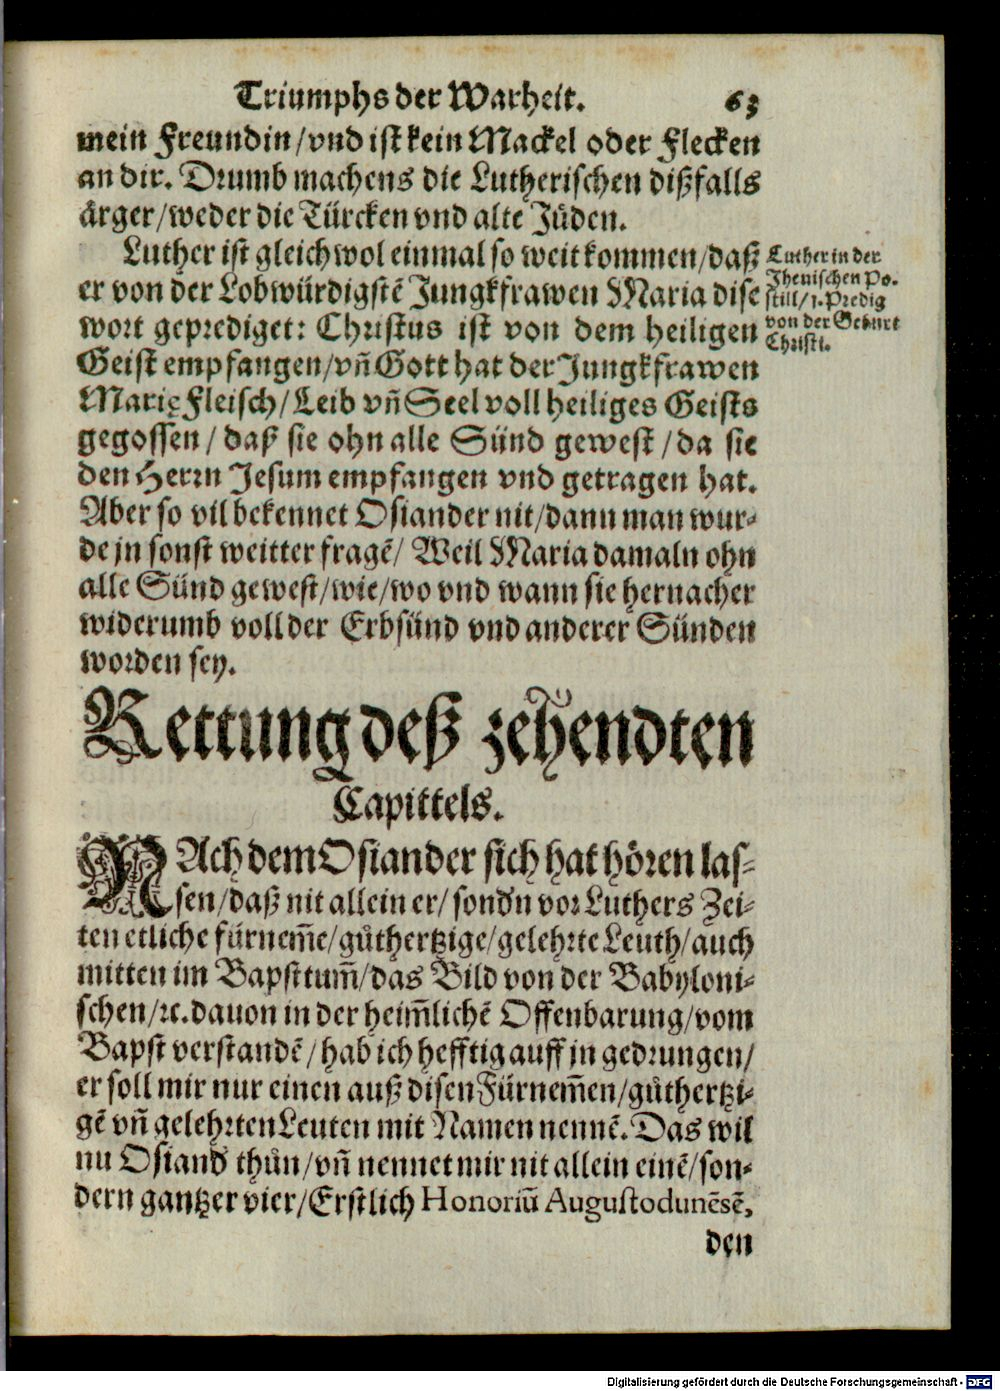 Triumphs der Warheit. 63
mein Freundin/vnd ist kein Mackel oder Flecken
an dir. Drumb machens die Lutherischen dißfalls
ärger/weder die Türcken vnd alte Jüden.
Luther ist gleichwol einmal so weit kommen/daß
er von der Lobwürdigstẽ Jungkfrawen Maria dise
wort geprediget: Christus ist von dem heiligen
Geist empfangen/vñ Gott hat der Jungkfrawen
Marię Fleisch/Leib vñ Seel voll heiliges Geists
gegossen/daß sie ohn alle Sünd gewest/da sie
den Herrn Jesum empfangen vnd getragen hat.
Aber so vil bekennet Osiander nit/dann man wur-
de jn sonst weitter fragẽ/ Weil Maria damaln ohn
alle Sünd gewest/wie/wo vnd wann sie hernacher
widerumb voll der Erbsünd vnd anderer Sünden
worden sey.
Luther in der
Jhenischen Po-
still/1. Predig
von der Geburt
Christi.
Rettung deß zehendten
Capittels.
NAch dem Osiander sich hat hören las-
sen/daß nit allein er/sondn vor Luthers Zei-
ten etliche fürnem̃e/gůthertzige/gelehrte Leuth/auch
mitten im Bapsttum̃/das Bild von der Babyloni-
schen/ꝛc. dauon in der heim̃lichẽ Offenbarung/vom
Bapst verstandẽ/hab ich hefftig auff jn gedrungen/
er soll mir nur einen auß disen Fürnem̃en/gůthertzi-
gẽ vñ gelehrten Leuten mit Namen nennẽ. Das wil
nu Osiand thůn/vñ nennet mir nit allein einẽ/son-
dern gantzer vier/Erstlich Honoriũ Augustodunẽsẽ,
den
Digitalisierung gefördert durch die Deutsche Forschungsgemeinschaft - DFG